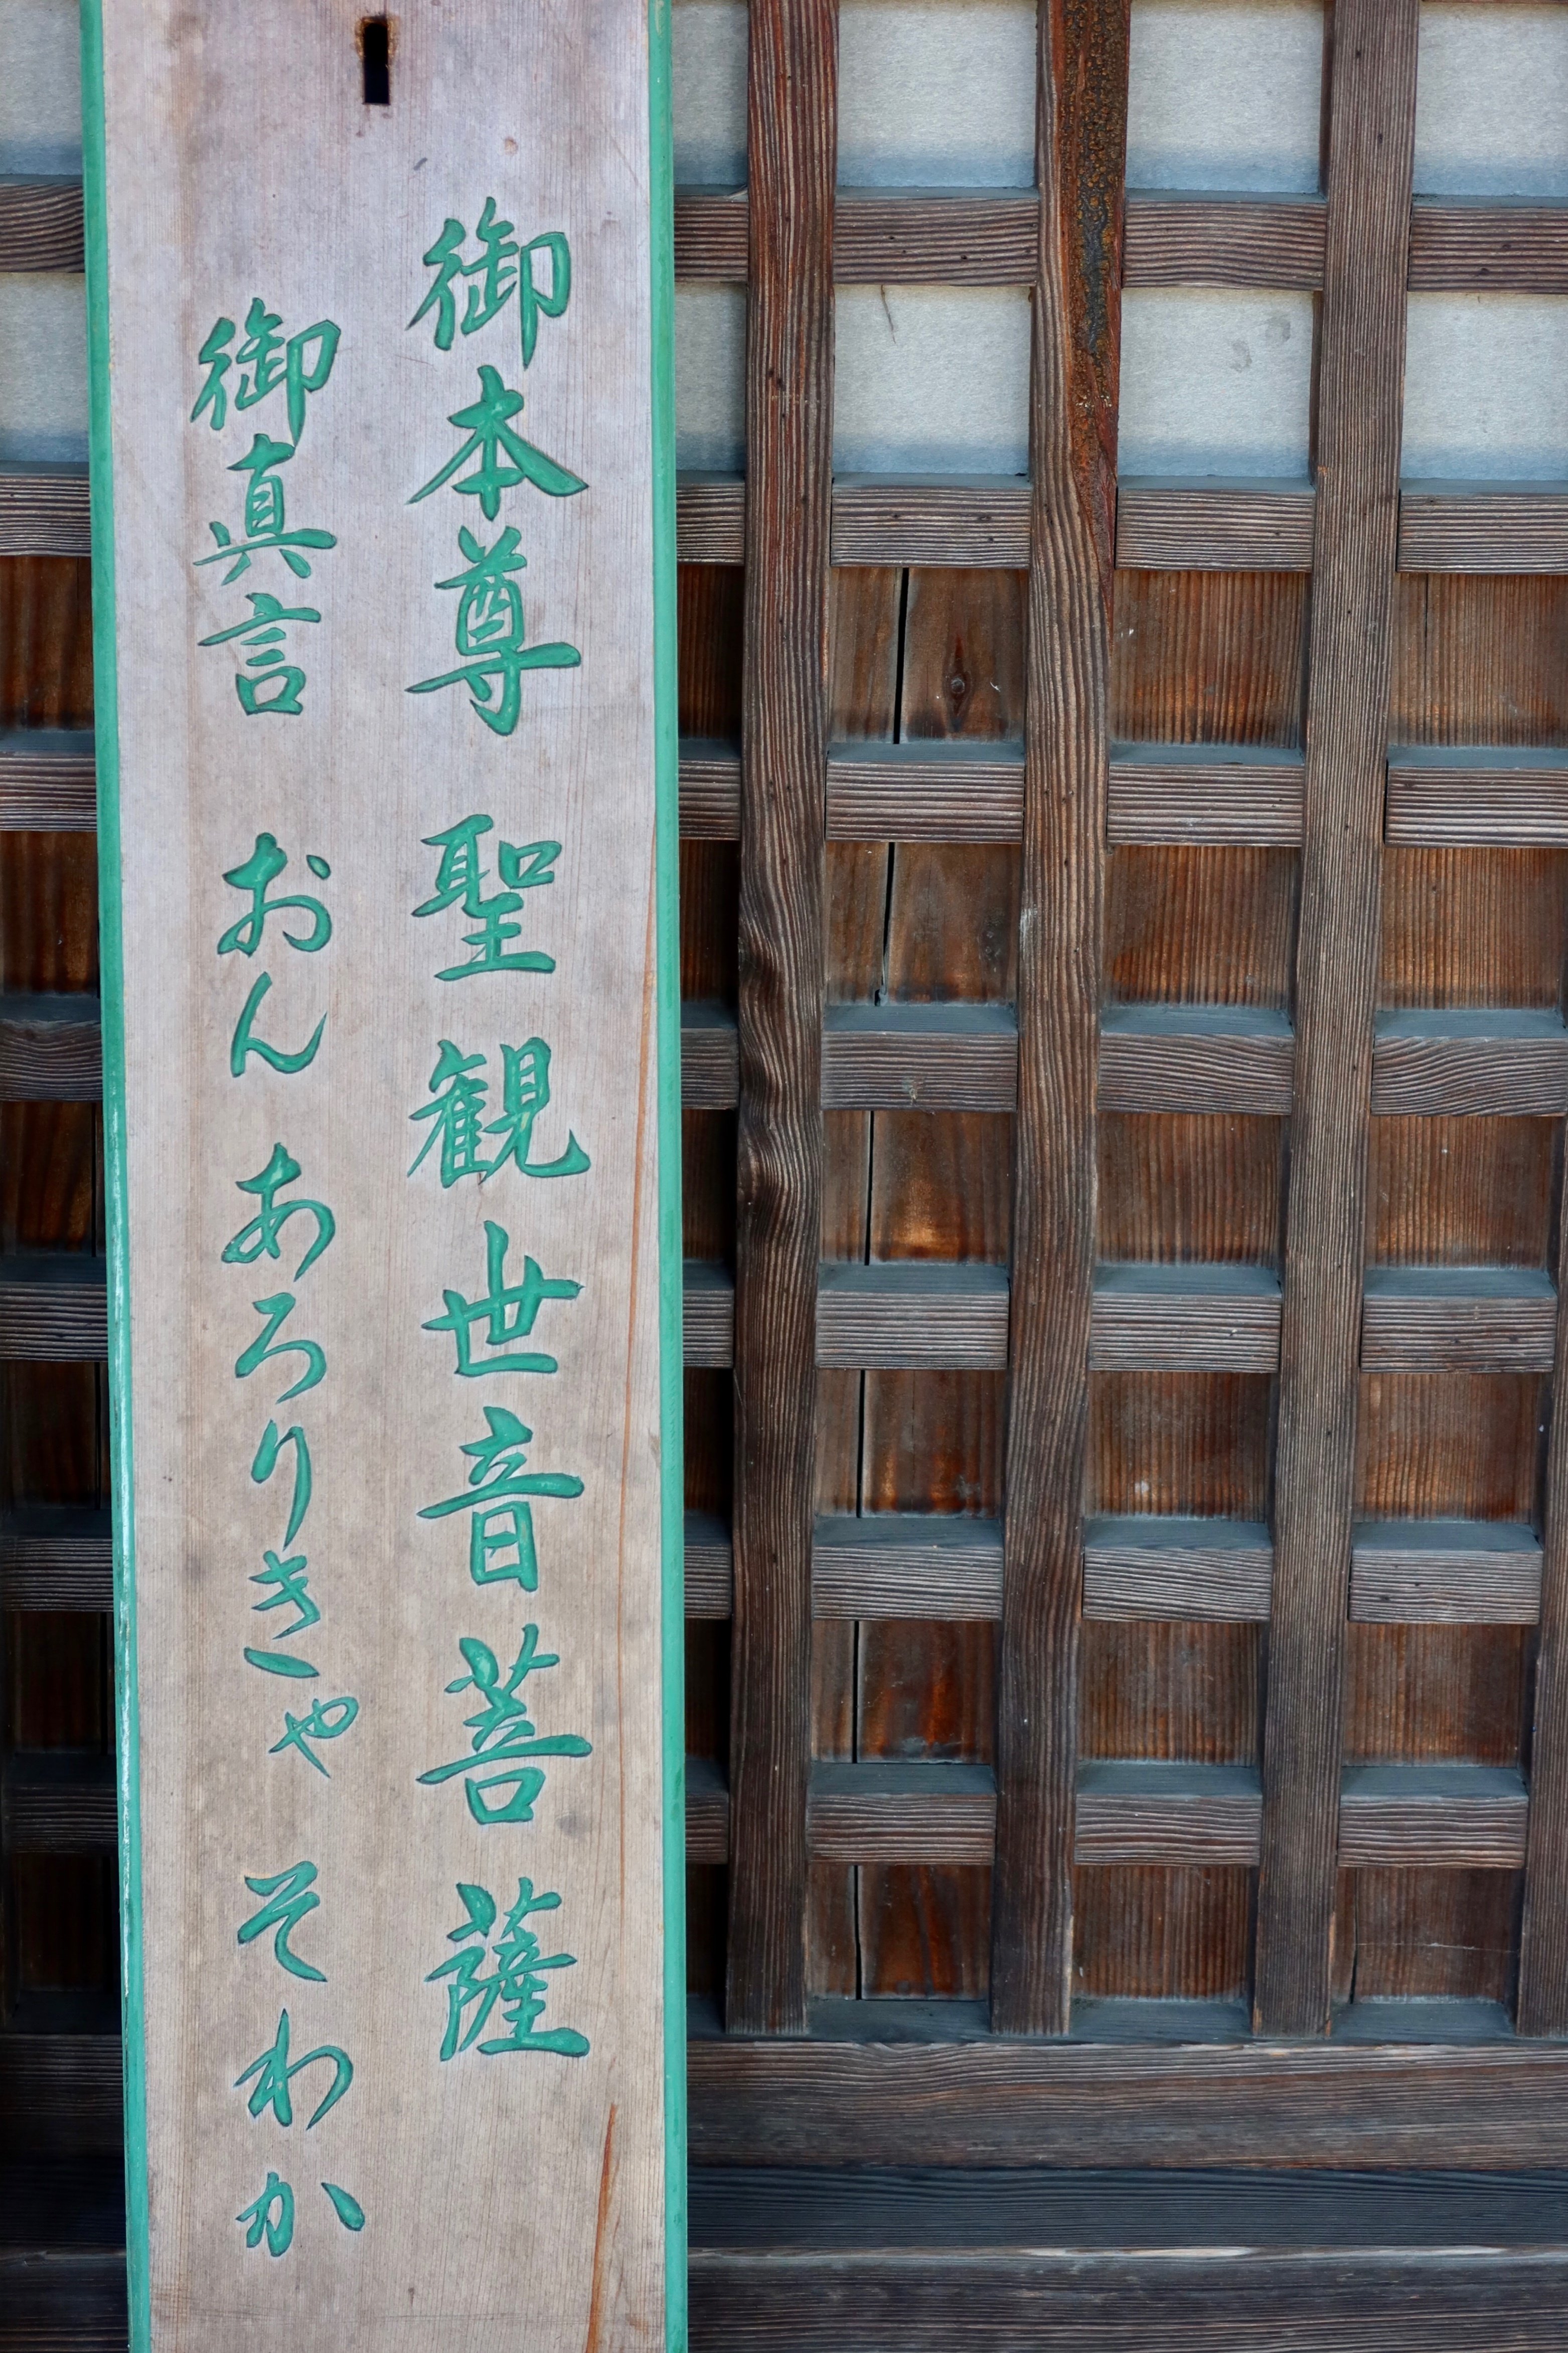 御本尊 聖観世音菩薩
御真言 おん あろりきゃ そわか